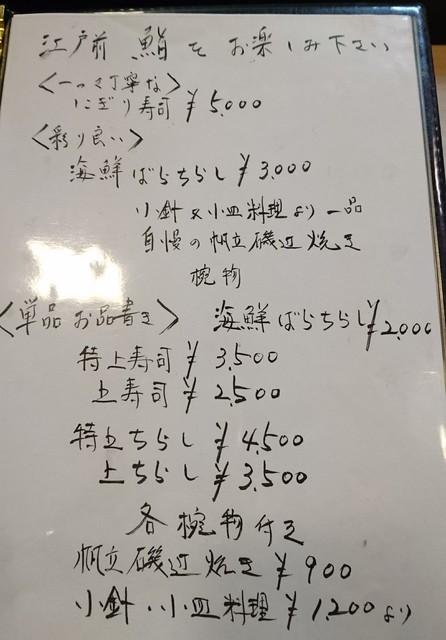 江戸前 鮨を お楽しみ下さい
<一つ一つ丁寧な>
にぎり寿司 ¥5,000
<彩り良い>
海鮮ばらちらし ¥3,000
小針&小皿料理より一品
自慢の帆立磯辺焼き
椀物
<単品お品書き> 海鮮ばらちらし ¥2,000
特上寿司 ¥3,500
上寿司 ¥2,500
特上ちらし ¥4,500
上ちらし ¥3,500
各椀物付き
帆立磯辺焼き ¥900
小針、小皿料理 ¥1,200より